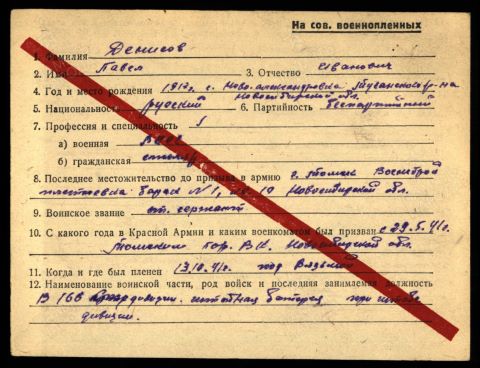 На сов. военнопленных
1. Фамилия Денисов
2. Имя Павел 3. Отчество Иванович
4. Год и место рождения 1917г. с. Ново-александровка Туганского р-на
Новосибирской обл.
5. Национальность русский 6. Партийность беспартийный
7. Профессия и специальность
а) военная
б) гражданская столяр
8. Последнее местожительство до призыва в армию г. Томск Военстрой
площадка барак N 1, кв. 10 Новосибирской обл.
9. Воинское звание ст. сержант
10. С какого года в Красной Армии и каким военкоматом был призван с 29.5.41г.
Томским Гор. В.К. Новосибирской обл.
11. Когда и где был пленен 13.10.41г. под Вязьмой
12. Наименование воинской части, род войск и последняя занимаемая должность
В 166 дивизии. штабная батарея при штабе
дивизии.